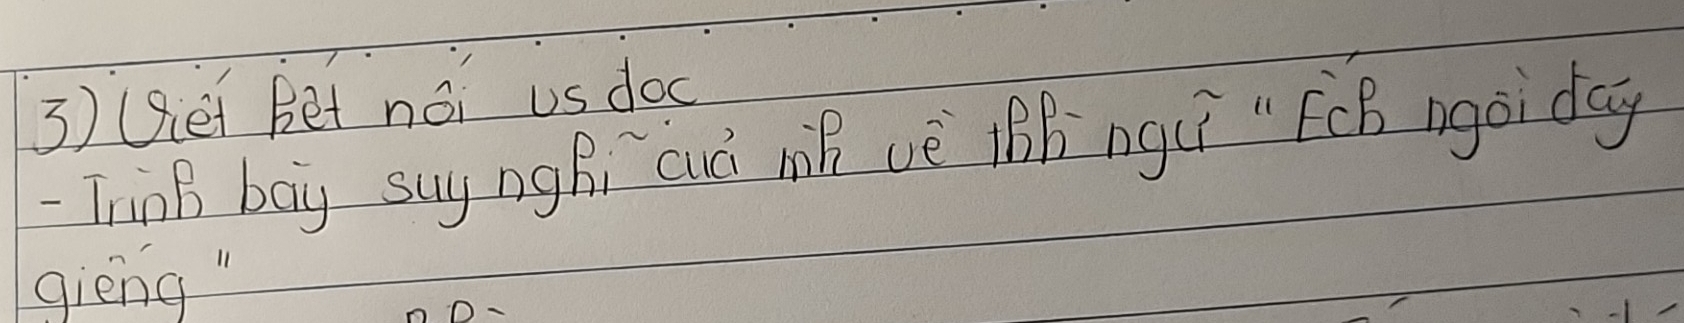 3) Viết kết nối vs đọc
- Trình bày suy nghĩ của mh về thh ngữ "Ếch ngồi đáy
giếng"